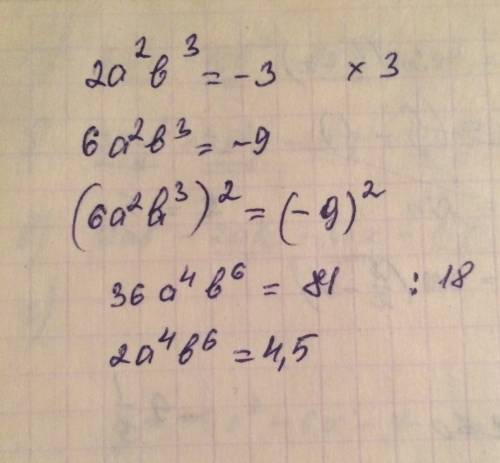 2a²b³ = -3 × 3
6a²b³ = -9
(6a²b³)² = (-9)²
36a⁴b⁶ = 81 : 18
2a⁴b⁶ = 4,5